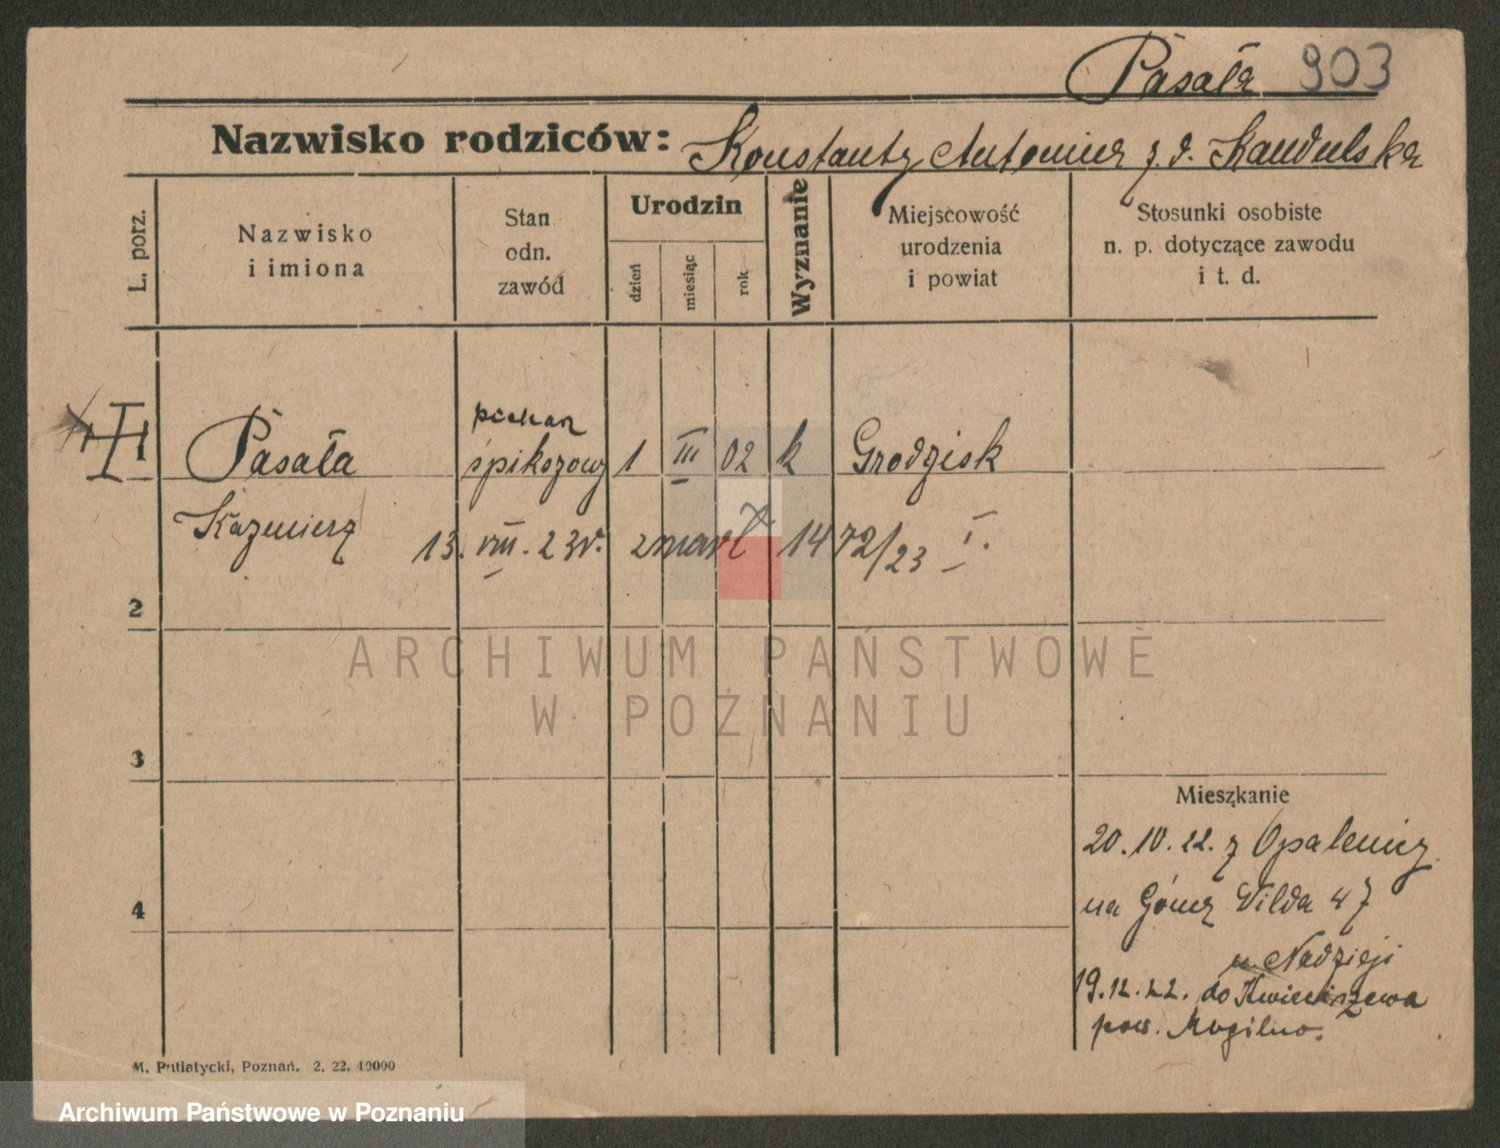 Pasała 903
Nazwisko rodziców: Konstanty Antonina z.d. Kandulska
L. porz.
Nazwisko
i imiona
Stan
odn.
zawód
Urodzin
dzień
miesiąc
rok
Wyznanie
Miejscowość
urodzenia
i powiat
Stosunki osobiste
n. p. dotyczące zawodu
i t. d.
piekarz
Pasała 1 III 02 k Grodzisk
Kazimierz 13. VIII. 23r. zmarł 1472/23 I.
2
3
4
Mieszkanie
20.10.22. z Opalenicy
na Górnej Wilda 47
u Nadzieji
19.12.22. do Kwieciszewa
pow. Mogilno.
M. Putiatycki, Poznań. 2. 22. 10000
ARCHIWUM PAŃSTWOWE
W POZNANIU
Archiwum Państwowe w Poznaniu